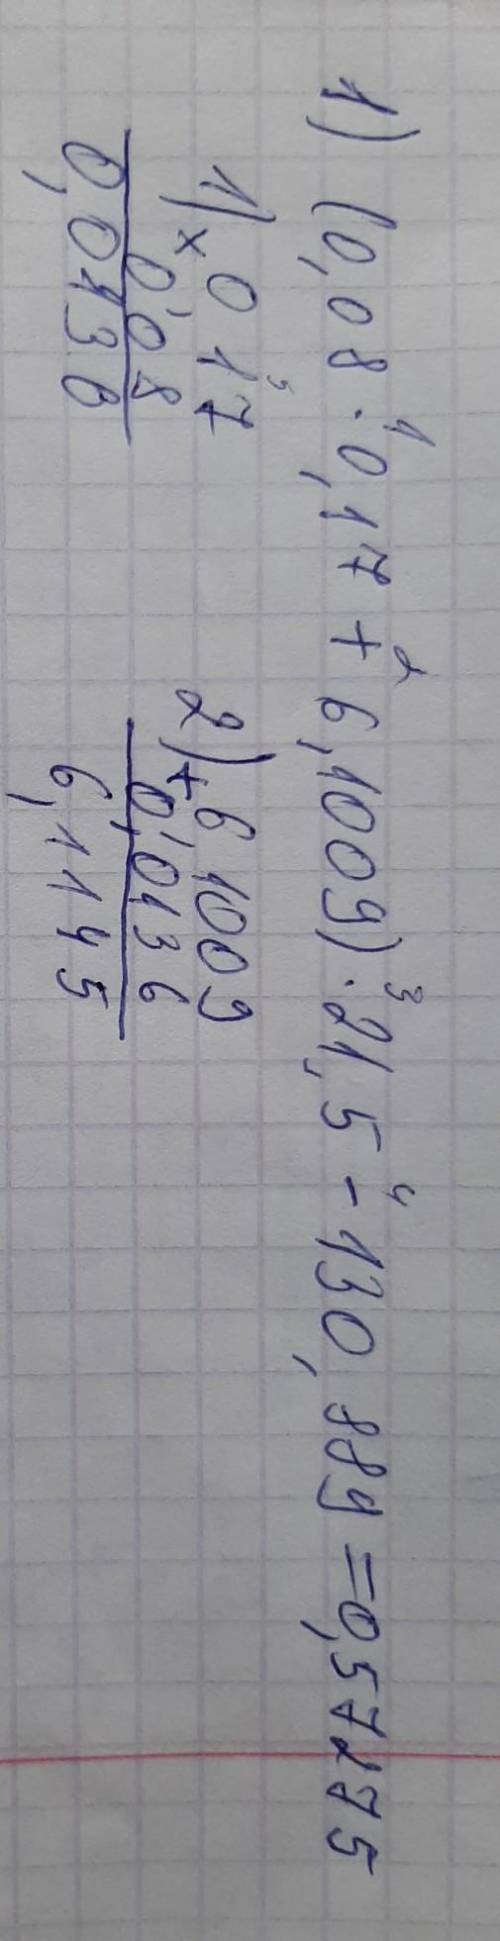 1) (0,08 · 0,17 + 6,1009) · 21,5 - 130,889 = 0,57275
1 2 3 4
1) × 0,17
5
0,08
0,0136
2) + 6,1009
0,0136
6,1145